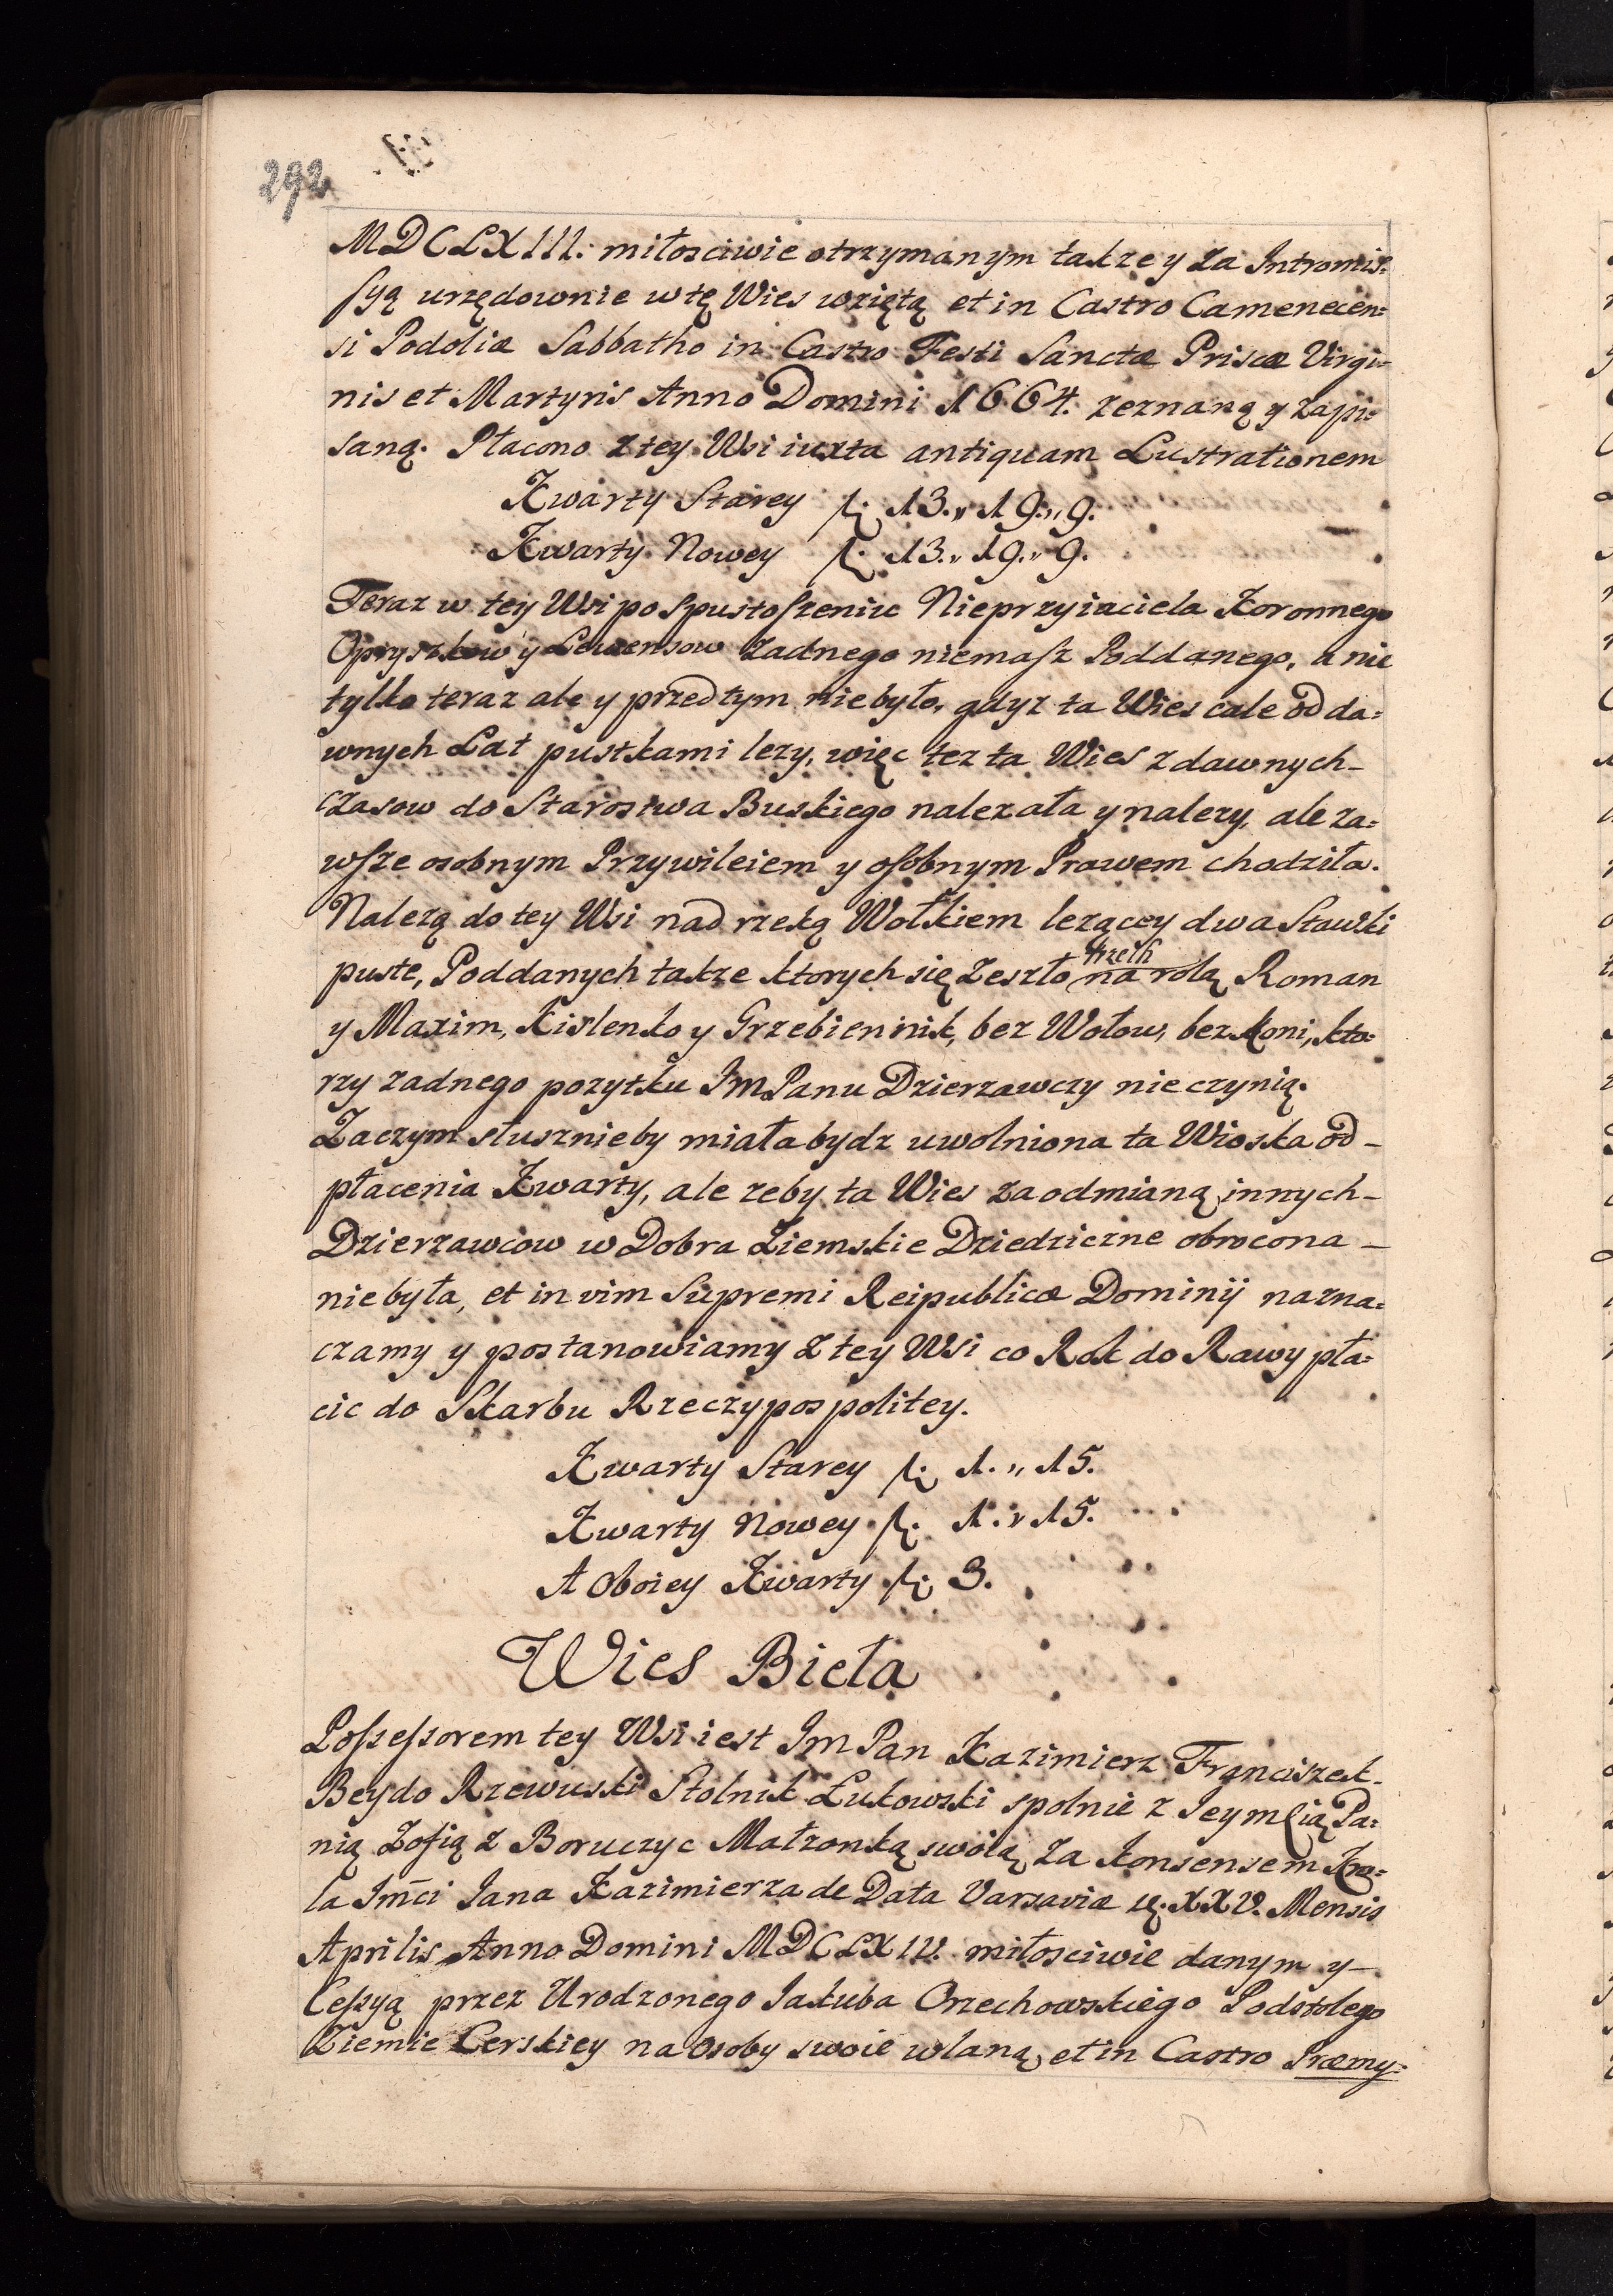 292
MDCLXIII: miłosciwie otrzymanym takze y za Intromis=
syą urzędownie w tę Wies wziętą et in Castro Camenecen=
si Podoliæ Sabbatho in Castro Festi Sanctæ Priscæ Virgi=
nis et Martyris Anno Domini 1664. zeznaną y zapi=
saną. Płacono z tey Wsi iuxta antiquam Lustrationem
Kwarty Starey f: 13.,, 19.,, 9.
Kwarty Nowey f: 13.,, 19.,, 9.
Teraz w tey Wsi po spustoszeniu Nieprzyiaciela Koronnego
Opryszkow y Lewensow zadnego niemasz Poddanego, a nie
tylko teraz ale y przedtym niebyło, gdyz ta Wies cale od da=
wnych Lat pustkami lezy, więc tez ta Wies z dawnych-
czasow do Starostwa Buskiego nalezała y nalezy, ale za=
wsze osobnym Przywileiem y osobnym Prawem chodziła.
Nalezą do tey Wsi nad rzeką Wołkiem lezącey dwa Stawki
puste, Poddanych takze ktorych się zeszło trzech na rolą Roman
y Maxim, Kislenko y Grzebiennik, bez Wołow, bez koni, kto=
rzy zadnego pozytku Im Panu Dzierzawczy nie czynią.
Zaczym słusznieby miała bydz uwolniona ta Wioska od-
płacenia Kwarty, ale zeby ta Wies za odmianą innych-
Dzierzawcow w Dobra Ziemskie Dziedziczne obrocona-
niebyła, et in vim Supremi Reipublicæ Dominij nazna=
czamy y postanowiamy z tey Wsi co Rok do Rawy pła=
cic do Skarbu Rzeczypospolitey.
Kwarty Starey f: 1.,, 15.
Kwarty Nowey f: 1.,, 15.
A Oboiey Kwarty f: 3.
Wies Bieła
Possessorem tey Wsi iest Im Pan Kazimierz Franciszek-
Beydo Rzewuski Stolnik Łukowski spolnie z Ieymscią Pa=
nią Zofią z Boruczyc Małzonką swoią za konsensem Kro=
la Imci Iana Kazimierza de Data Varsaviæ XXV. Mensis
Aprilis Anno Domini MDCLXIV. miłosciwie danym y-
Cessyą przez Urodzonego Iakuba Orzechowskiego Podstolego
Ziemie Cerskiey na osoby swoie wlaną, et in Castro Præmy=